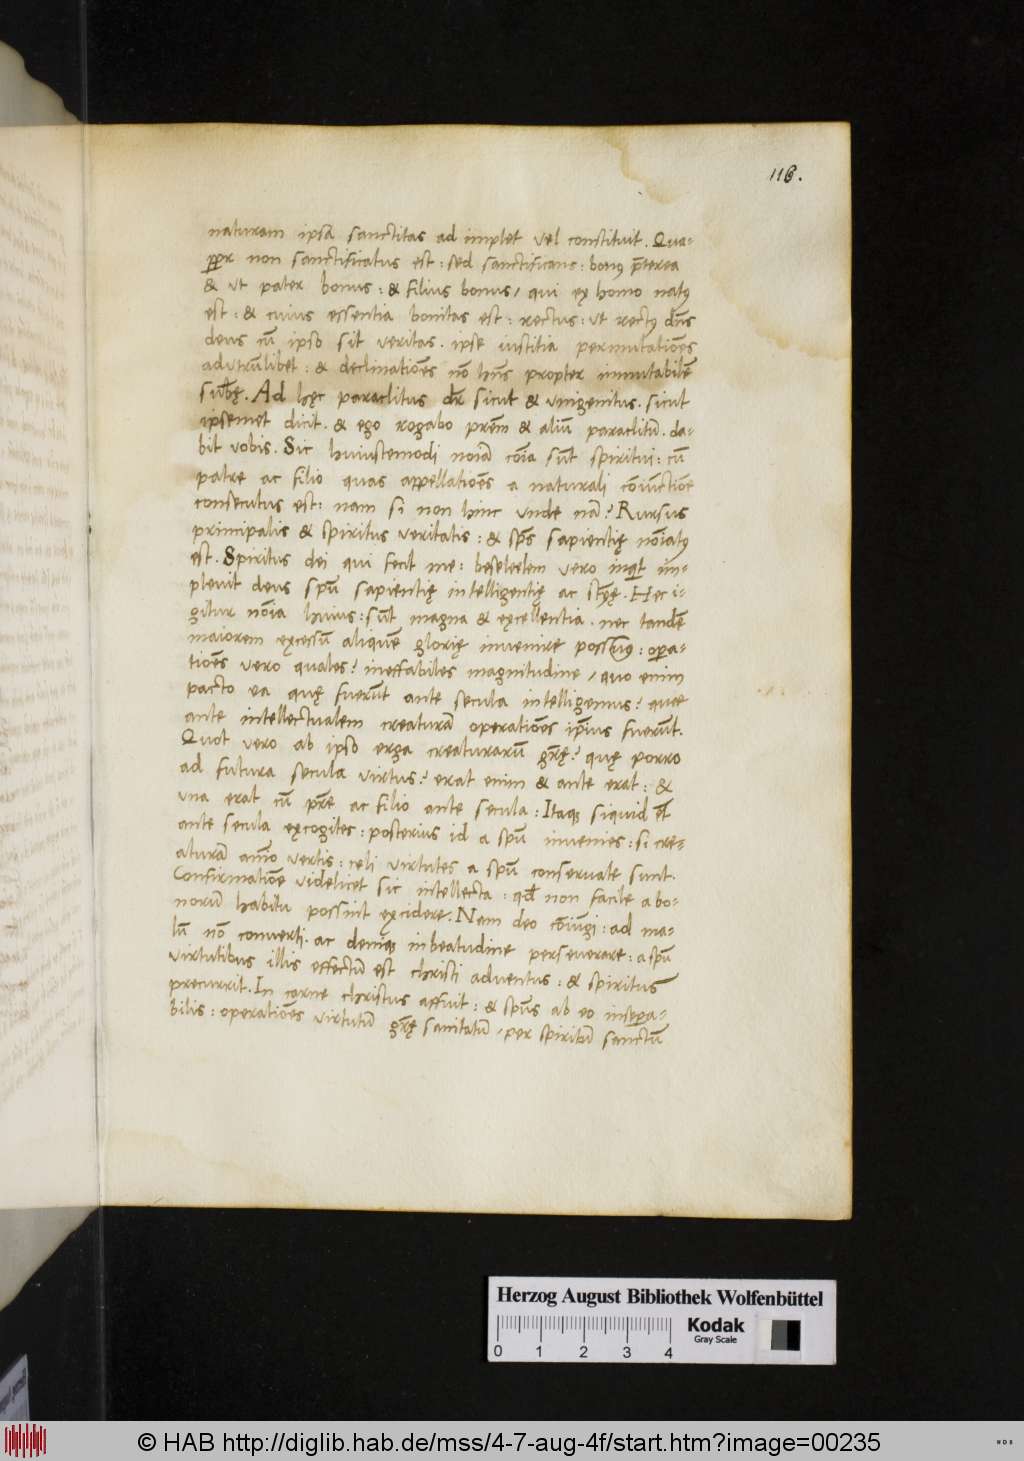 116.
naturam ipsā sanctitas ad implet vel constituit. Qua-
ppr non sanctificatus est: sed sanctificans: bonꝰ p̄terea
& ut pater bonus: & filius bonus, qui ex homo natꝰ
est: & cuius essentia bonitas est: rectus: ut rectꝰ dn̄s
deus cū ipso sit veritas. ipse iustitia permutatiōes
ad utrūlibet: & declinatiōes nō hn̄s propter immutabilē
Ad hęc paraclitus dr̄ sicut & unigenitus. sicut
ipsemet dicit. & ego rogabo prēm & aliū paraclitū. da-
bit vobis. Sic huiuscemodi noīa cōia sūt spiritui: cū
patre ac filio quas appellatiōes a naturali cōiūctiōe
consecutus est: nam si non hinc unde nā? Rursus
principalis & spiritus veritatis: & sp̄s sapientię nōiatꝰ
est. Spiritus dei qui fecit me: beseleelem vero inqͥt im-
plevit deus spū sapientię intelligentię ac Hec i-
gitur nōia huius: sūt magna & excellentia. nec tandē
maiorem excessū aliquē glorię invenire possumꝰ: opera-
tiōes vero quales? ineffabiles magnitudine, quo enim
pacto ea quę fuerūt ante secula intelligemus? quae
ante intellectualem creaturā operatiōes ipsius fuerūt.
Quot vero ab ipso erga creaturarū gr̄ę? quę porro
ad futura secula virtus? erat enim & ante erat: &
una erat cū pr̄e ac filio ante secula: Itaqꝫ siquid et
ante secula excogites: posterius id a spū invenies: si cre-
aturā aīo vertis: celi virtutes a spū conservate sunt.
Confirmatiōe videlicet sic intellecta: qd̄ non facile a bo-
norū habitu possint excidere. Nam deo cōiūgi: ad ma-
lū nō converti. ac deniqꝫ in beatudine perseverare: a spū
virtutibus illis effectū est christi adventus: & spiritus
precurrit. In carne christus affuit: & spūs ab eo insepara-
bilis: operatiōes virtutū gr̄ę sanitatū, per spiritū sanctū
Herzog August Bibliothek Wolfenbüttel
Kodak
Gray Scale
0 1 2 3 4
© HAB http://diglib.hab.de/mss/4-7-aug-4f/start.htm?image=00235